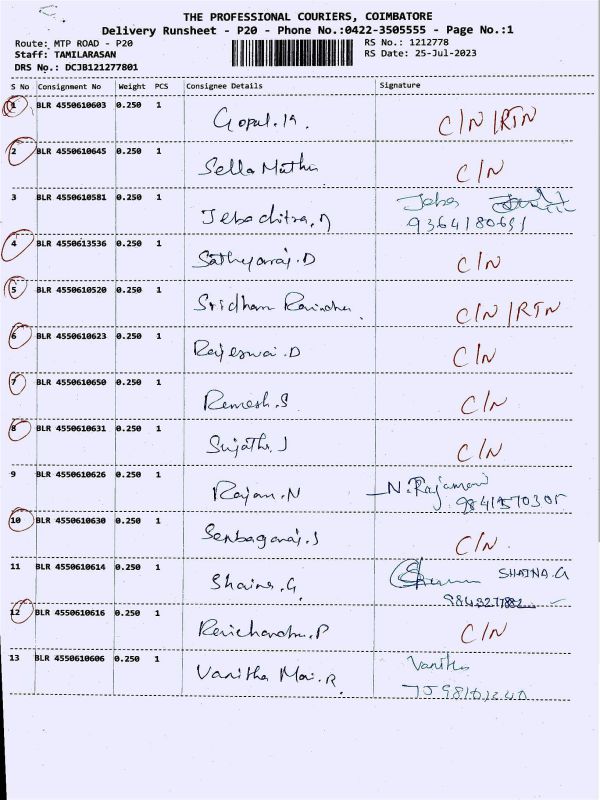 THE PROFESSIONAL COURIERS, COIMBATORE
Delivery Runsheet - P20 - Phone No.:0422-3505555 - Page No.:1
Route: MTP ROAD - P20 RS No.: 1212778
Staff: TAMILARASAN RS Date: 25-Jul-2023
DRS No.: DCJB121277801
S No Consignment No Weight PCS Consignee Details Signature
1 BLR 4550610603 0.250 1
Gopal. C/N/RTN
2 BLR 4550610645 0.250 1
Sella C/N
3 BLR 4550610581 0.250 1
Jeba
Jebachitra.
4 BLR 4550613536 0.250 1
Sathyaraj.D C/N
5 BLR 4550610520 0.250 1
Sridharn C/N/RTN
6 BLR 4550610623 0.250 1
Rajeswai.D C/N
7 BLR 4550610650 0.250 1
Remesh.S C/N
8 BLR 4550610631 0.250 1
Sujatha.J C/N
9 BLR 4550610626 0.250 1
Rajan.N N.Rajamani
10 BLR 4550610630 0.250 1
Senbagaraj.S C/N
11 BLR 4550610614 0.250 1
Shaina.G. SHAINA.G
12 BLR 4550610616 0.250 1
Ravichandra.P C/N
13 BLR 4550610606 0.250 1
Vanitha
Vanitha Mai.R